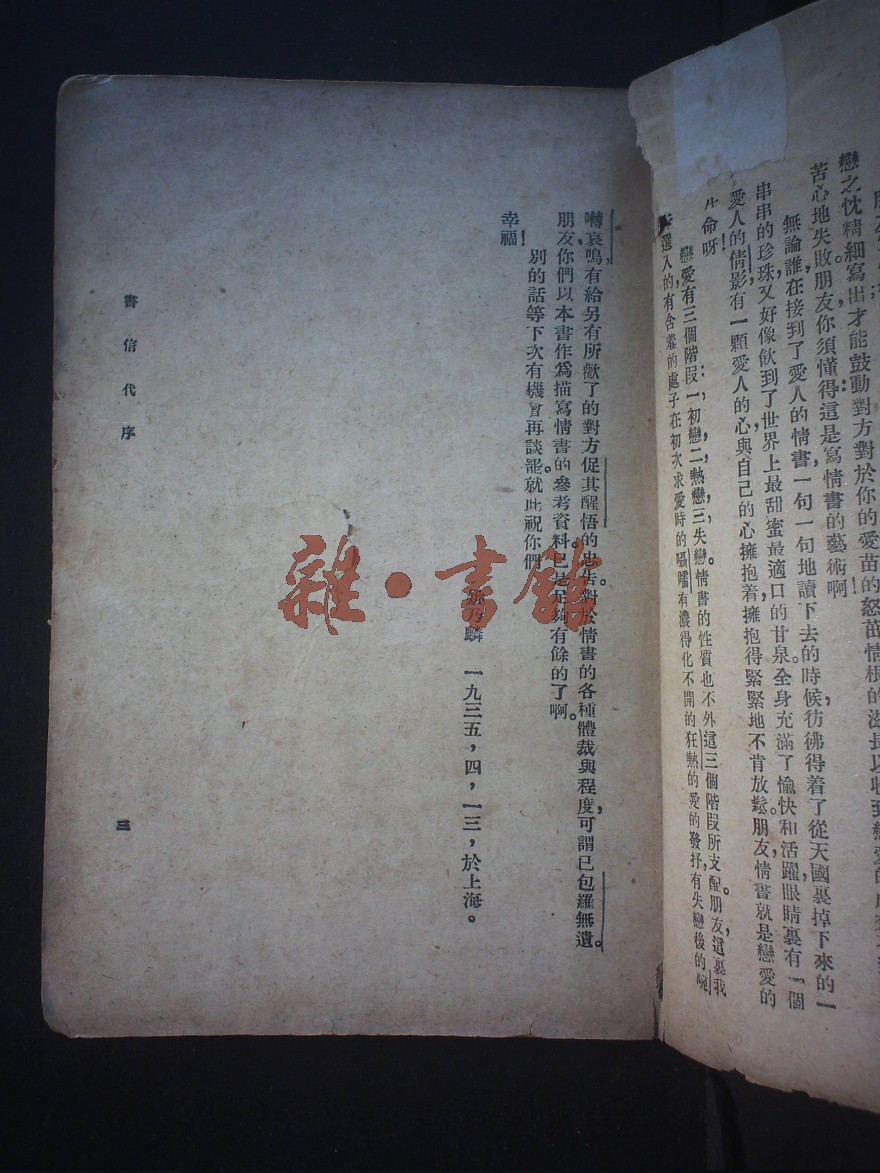 戀之忱精細寫出才能鼓動對方對於你的愛苗的怒苗情根的滋長以收到戀愛的
苦心地失敗朋友你須懂得這是寫情書的藝術啊！
無論誰在接到了愛人的情書一句一句地讀下去的時候，彷彿得着了從天國裏掉下來的一
串串的珍珠，又好像飲到了世界上最甜蜜最適口的甘泉。全身充滿了愉快和活躍，眼睛裏有一個
愛人的倩影，有一顆愛人的心與自己的心擁抱着，擁抱得緊緊地不肯放鬆。朋友，情書就是戀愛的
生命呀！
戀愛有三個階段：一，初戀，二，熱戀，三，失戀。情書的性質也不外這三個階段所支配。朋友，這裏我
選入的，有含羞的處子在初次求愛時的囁嚅，有濃得化不開的狂熱的愛的發抒，有失戀後的婉
囀哀鳴，有給另有所歡了的對方促其醒悟的忠告。對於情書的各種體裁與程度，可謂已包羅無遺。
朋友，你們以本書作爲描寫情書的參考資料，已是足夠有餘的了啊。
別的話等下次有機會再談罷。就此祝你們
幸福！
乃麟 一九三五，四，一三，於上海。
書信代序
三
雜·書館